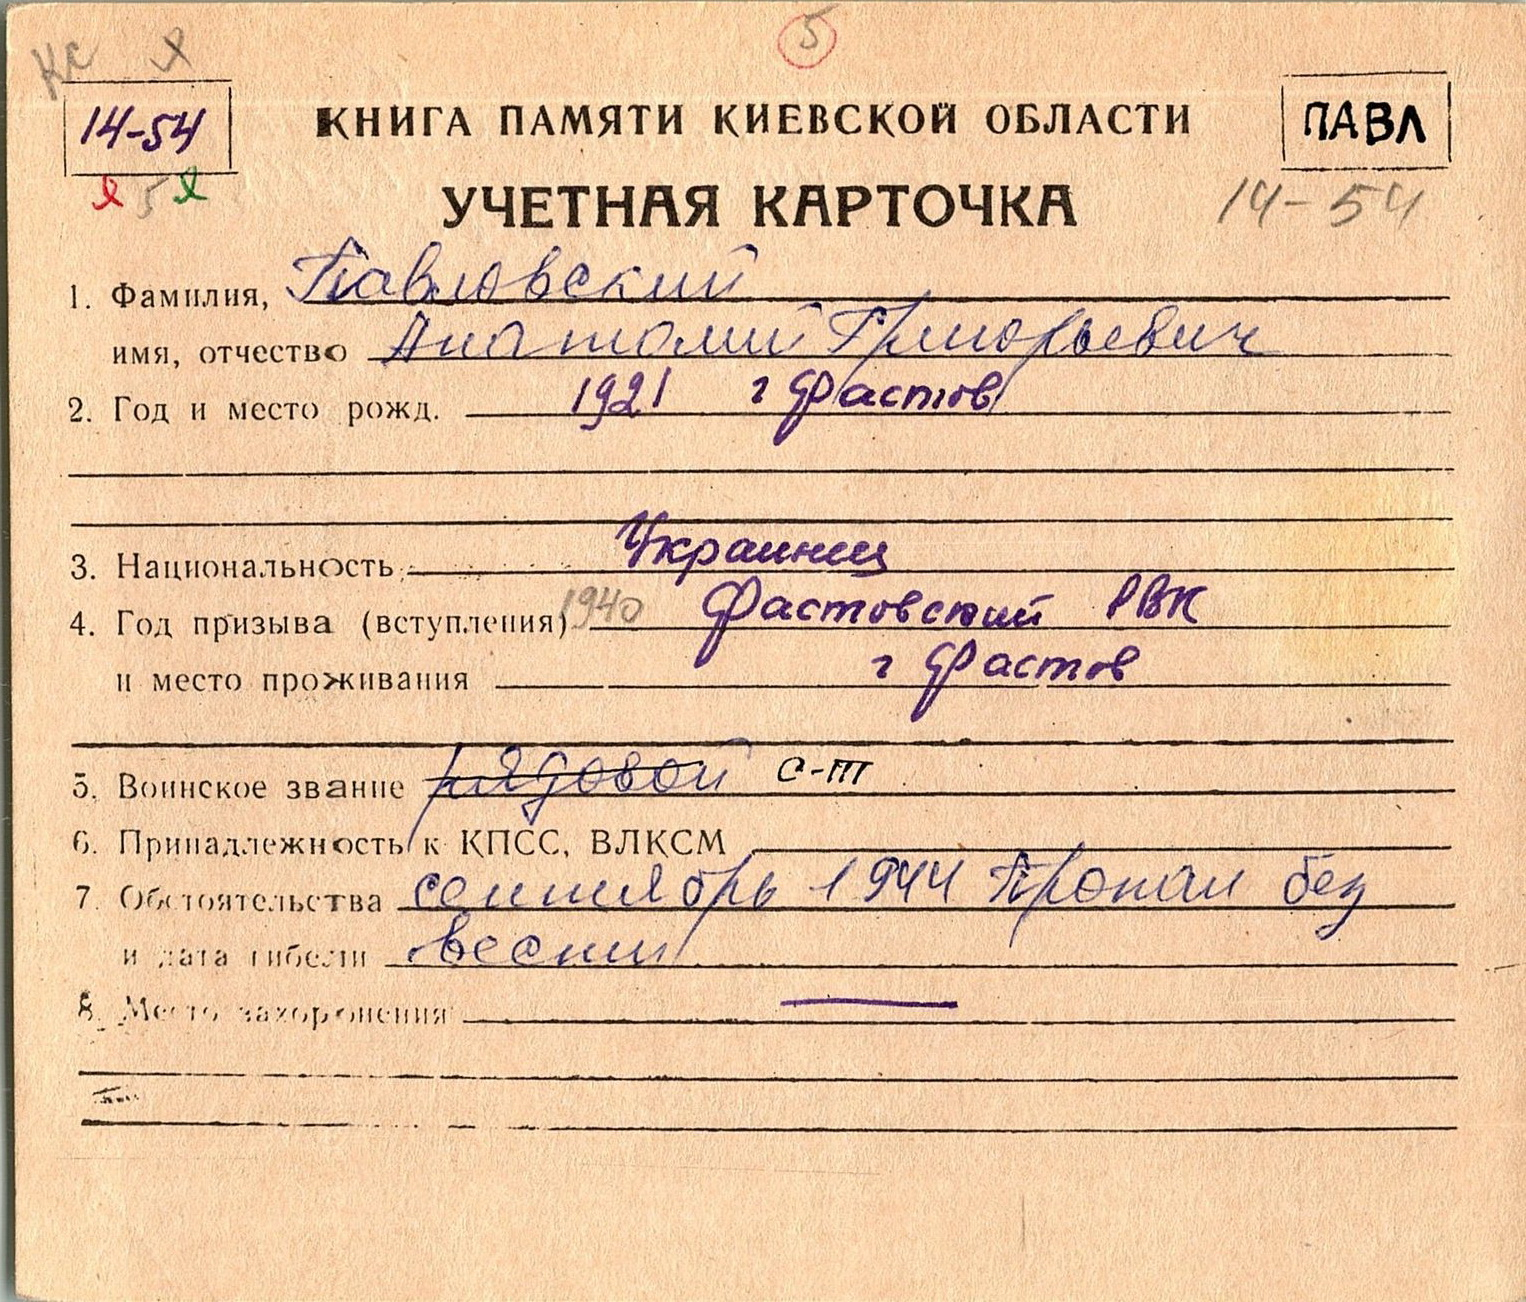 5
14-54
КНИГА ПАМЯТИ КИЕВСКОЙ ОБЛАСТИ
ПАВЛ
5
УЧЕТНАЯ КАРТОЧКА
14-54
1. Фамилия, Павловский
имя, отчество Анатолий Григорьевич
2. Год и место рожд. 1921 г Фастов
3. Национальность Украинец
4. Год призыва (вступления) 1940 Фастовский РВК
и место проживания г Фастов
5. Воинское звание рядовой с-т
6. Принадлежность к КПСС, ВЛКСМ
7. Обстоятельства сентябрь 1944 Пропал без
и дата гибели вести
8. Место захоронения —